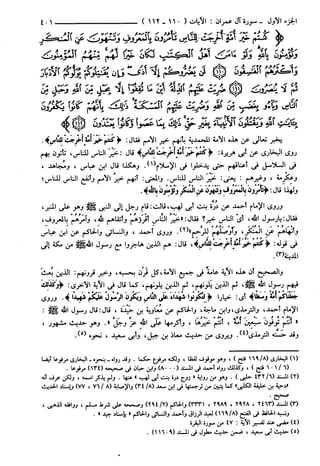 الجزء الأول - سورة آل عمران : الآيات ( ١١٠ - ١١٢ ) ٤٠١
كُنْتُمْ خَيْرَ أُمَّةٍ أُخْرِجَتْ لِلنَّاسِ تَأْمُرُونَ بِالْمَعْرُوفِ وَتَنْهَوْنَ عَنِ الْمُنْكَرِ
وَتُؤْمِنُونَ بِاللَّهِ وَلَوْ آمَنَ أَهْلُ الْكِتَابِ لَكَانَ خَيْرًا لَهُمْ مِنْهُمُ الْمُؤْمِنُونَ
وَأَكْثَرُهُمُ الْفَاسِقُونَ لَنْ يَضُرُّوكُمْ إِلَّا أَذًى وَإِنْ يُقَاتِلُوكُمْ يُوَلُّوكُمُ الْأَدْبَارَ
ثُمَّ لَا يُنْصَرُونَ ضُرِبَتْ عَلَيْهِمُ الذِّلَّةُ أَيْنَ مَا ثُقِفُوا إِلَّا بِحَبْلٍ مِنَ اللَّهِ وَحَبْلٍ مِنَ
النَّاسِ وَبَاءُوا بِغَضَبٍ مِنَ اللَّهِ وَضُرِبَتْ عَلَيْهِمُ الْمَسْكَنَةُ ذَلِكَ بِأَنَّهُمْ كَانُوا يَكْفُرُونَ
بِآيَاتِ اللَّهِ وَيَقْتُلُونَ الْأَنْبِيَاءَ بِغَيْرِ حَقٍّ ذَلِكَ بِمَا عَصَوْا وَكَانُوا يَعْتَدُونَ
يخبر تعالى عن هذه الأمة المحمدية بأنهم خير الأمم فقال: ﴿كنتم خير أمة أخرجت للناس﴾.
روى البخاري عن أبي هريرة: ﴿كنتم خير أمة أخرجت للناس﴾ قال: خير الناس للناس، تأتون بهم
في السلاسل في أعناقهم حتى يدخلوا في الإسلام(١). وهكذا قال ابن عباس، ومجاهد،
وعكرمة، وغيرهم: يعني: خير الناس للناس. والمعنى: أنهم خير الأمم وأنفع الناس للناس؛
ولهذا قال: ﴿تأمرون بالمعروف وتنهون عن المنكر وتؤمنون بالله﴾.
وروى الإمام أحمد عن درة بنت أبي لهب، قالت: قام رجل إلى النبي ﷺ وهو على المنبر،
فقال: يا رسول الله، أي الناس خير؟ فقال: «خير الناس أقرؤهم وأتقاهم لله، وآمرهم بالمعروف،
وأنهاهم عن المنكر، وأوصلهم للرحم»(٢). وروى أحمد، والنسائي والحاكم عن ابن عباس
في قوله: ﴿كنتم خير أمة أخرجت للناس﴾، قال: هم الذين هاجروا مع رسول الله ﷺ من مكة إلى
المدينة(٣).
والصحيح أن هذه الآية عامة في جميع الأمة، كل قرن بحسبه، وخير قرونهم: الذين بعث
فيهم رسول الله ﷺ، ثم الذين يلونهم، ثم الذين يلونهم، كما قال في الآية الأخرى: ﴿وكذلك
جعلناكم أمة وسطا﴾ أي: خيارا ﴿لتكونوا شهداء على الناس ويكون الرسول عليكم شهيدا﴾. وروى
الإمام أحمد، والترمذي، وابن ماجة، والحاكم عن معاوية بن حيدة، قال: قال رسول الله ﷺ:
«أنتم توفون سبعين أمة، أنتم خيرها، وأكرمها على الله عز وجل». وهو حديث مشهور،
وقد حسنه الترمذي(٤). ويروى من حديث معاذ بن جبل، وأبي سعيد، نحوه(٥).
(١) البخاري (١٦٩/٨ فتح)، وهو موقوف لفظا، ولكنه مرفوع حكما. وقد رواه - بنحوه - البخاري مرفوعا أيضا
(١٠١/٦ فتح)، وكذلك رواه أحمد في المسند (٨٠٠٠) وابن حبان في صحيحه (١٣٤) مرفوعا.
(٢) المسند (٤٣٢/٦ حلبي).
صحيح.
(٣) المسند (٢٤٦٣، ٢٩٢٨، ٢٩٨٩، ٣٣٢١) والحاكم (٢٩٤/٢) وصححه على شرط مسلم، ووافقه الذهبي،
ونسبه الحافظ في الفتح (١٦٩/٨) لعبد الرزاق وأحمد والنسائي والحاكم «بإسناد جيد».
(٤) مضى عند تفسير الآية: ٤٧ من سورة البقرة
(٥) حديث أبي سعيد، ضمن حديث مطول في المسند (١١٦٠٩).